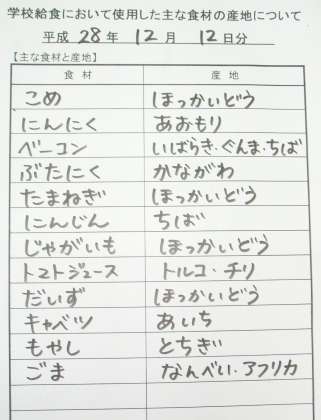 学校給食において使用した主な食材の産地について
平成 28 年 12 月 12 日分
【主な食材と産地】
食材 産地
こめ ほっかいどう
にんにく あおもり
ベーコン いばらき・ぐんま・ちば
ぶたにく かながわ
たまねぎ ほっかいどう
にんじん ちば
じゃがいも ほっかいどう
トマトジュース トルコ・チリ
だいず ほっかいどう
キャベツ あいち
もやし とちぎ
ごま なんべい・アフリカ